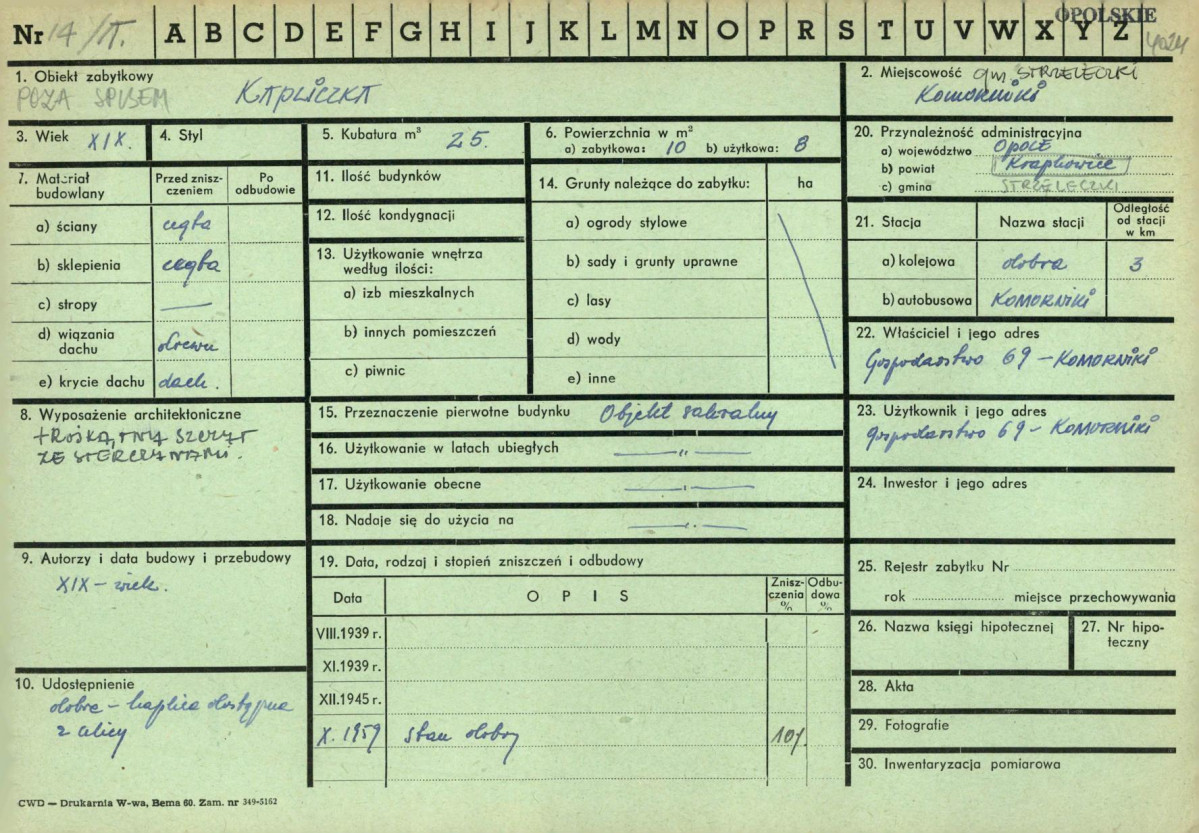 Nr 14/II. A B C D E F G H I J K L M N O P R S T U V W X Y Z
OPOLSKIE
4024
1. Obiekt zabytkowy
POZA SPISEM KAPLICZKA
2. Miejscowość gm. STRZELECZKI
KOMORNIKI
3. Wiek XIX.
4. Styl
5. Kubatura m³ 25.
6. Powierzchnia w m²
a) zabytkowa: 10 b) użytkowa: 8
20. Przynależność administracyjna
a) województwo OPOLE
b) powiat Krapkowice
c) gmina STRZELECZKI
7. Materiał budowlany
Przed zniszczeniem
Po odbudowie
a) ściany cegła
b) sklepienia cegła
c) stropy —
d) wiązania dachu drewn
e) krycie dachu dach.
11. Ilość budynków
12. Ilość kondygnacji
13. Użytkowanie wnętrza
według ilości:
a) izb mieszkalnych
b) innych pomieszczeń
c) piwnic
14. Grunty należące do zabytku: ha
a) ogrody stylowe
b) sady i grunty uprawne
c) lasy
d) wody
e) inne
21. Stacja
Nazwa stacji
Odległość
od stacji
w km
a) kolejowa dobra 3
b) autobusowa KOMORNIKI
22. Właściciel i jego adres
Gospodarstwo 69 – KOMORNIKI
8. Wyposażenie architektoniczne
TRÓJKĄTNY SZCZYT
ZE STERCZYNAMI.
15. Przeznaczenie pierwotne budynku Objekt sakralny
16. Użytkowanie w latach ubiegłych —"—
17. Użytkowanie obecne —"—
18. Nadaje się do użycia na —"—
23. Użytkownik i jego adres
gospodarstwo 69 – KOMORNIKI
24. Inwestor i jego adres
9. Autorzy i data budowy i przebudowy
XIX – wiek.
19. Data, rodzaj i stopień zniszczeń i odbudowy
Data
OPIS
Zniszczenia %
Odbudowa %
VIII.1939 r.
XI.1939 r.
XII.1945 r.
X. 1959 stan dobry 10%
25. Rejestr zabytku Nr
rok miejsce przechowywania
26. Nazwa księgi hipotecznej
27. Nr hipoteczny
10. Udostępnienie
dobre – kaplica dostępna
z ulicy
28. Akta
29. Fotografie
30. Inwentaryzacja pomiarowa
CWD — Drukarnia W-wa, Bema 60. Zam. nr 349-5162